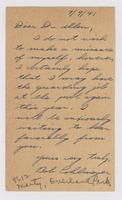 7/7/41
Dear Dr. Allen,
I do not wish
to make a nuisance
of myself, however,
I certainly hope
that I may have
the guarding job
at the pool again
this year. I
will be anxiously
waiting to hear
favorably from
you.
Yours very truly,
Bob
Overland Park